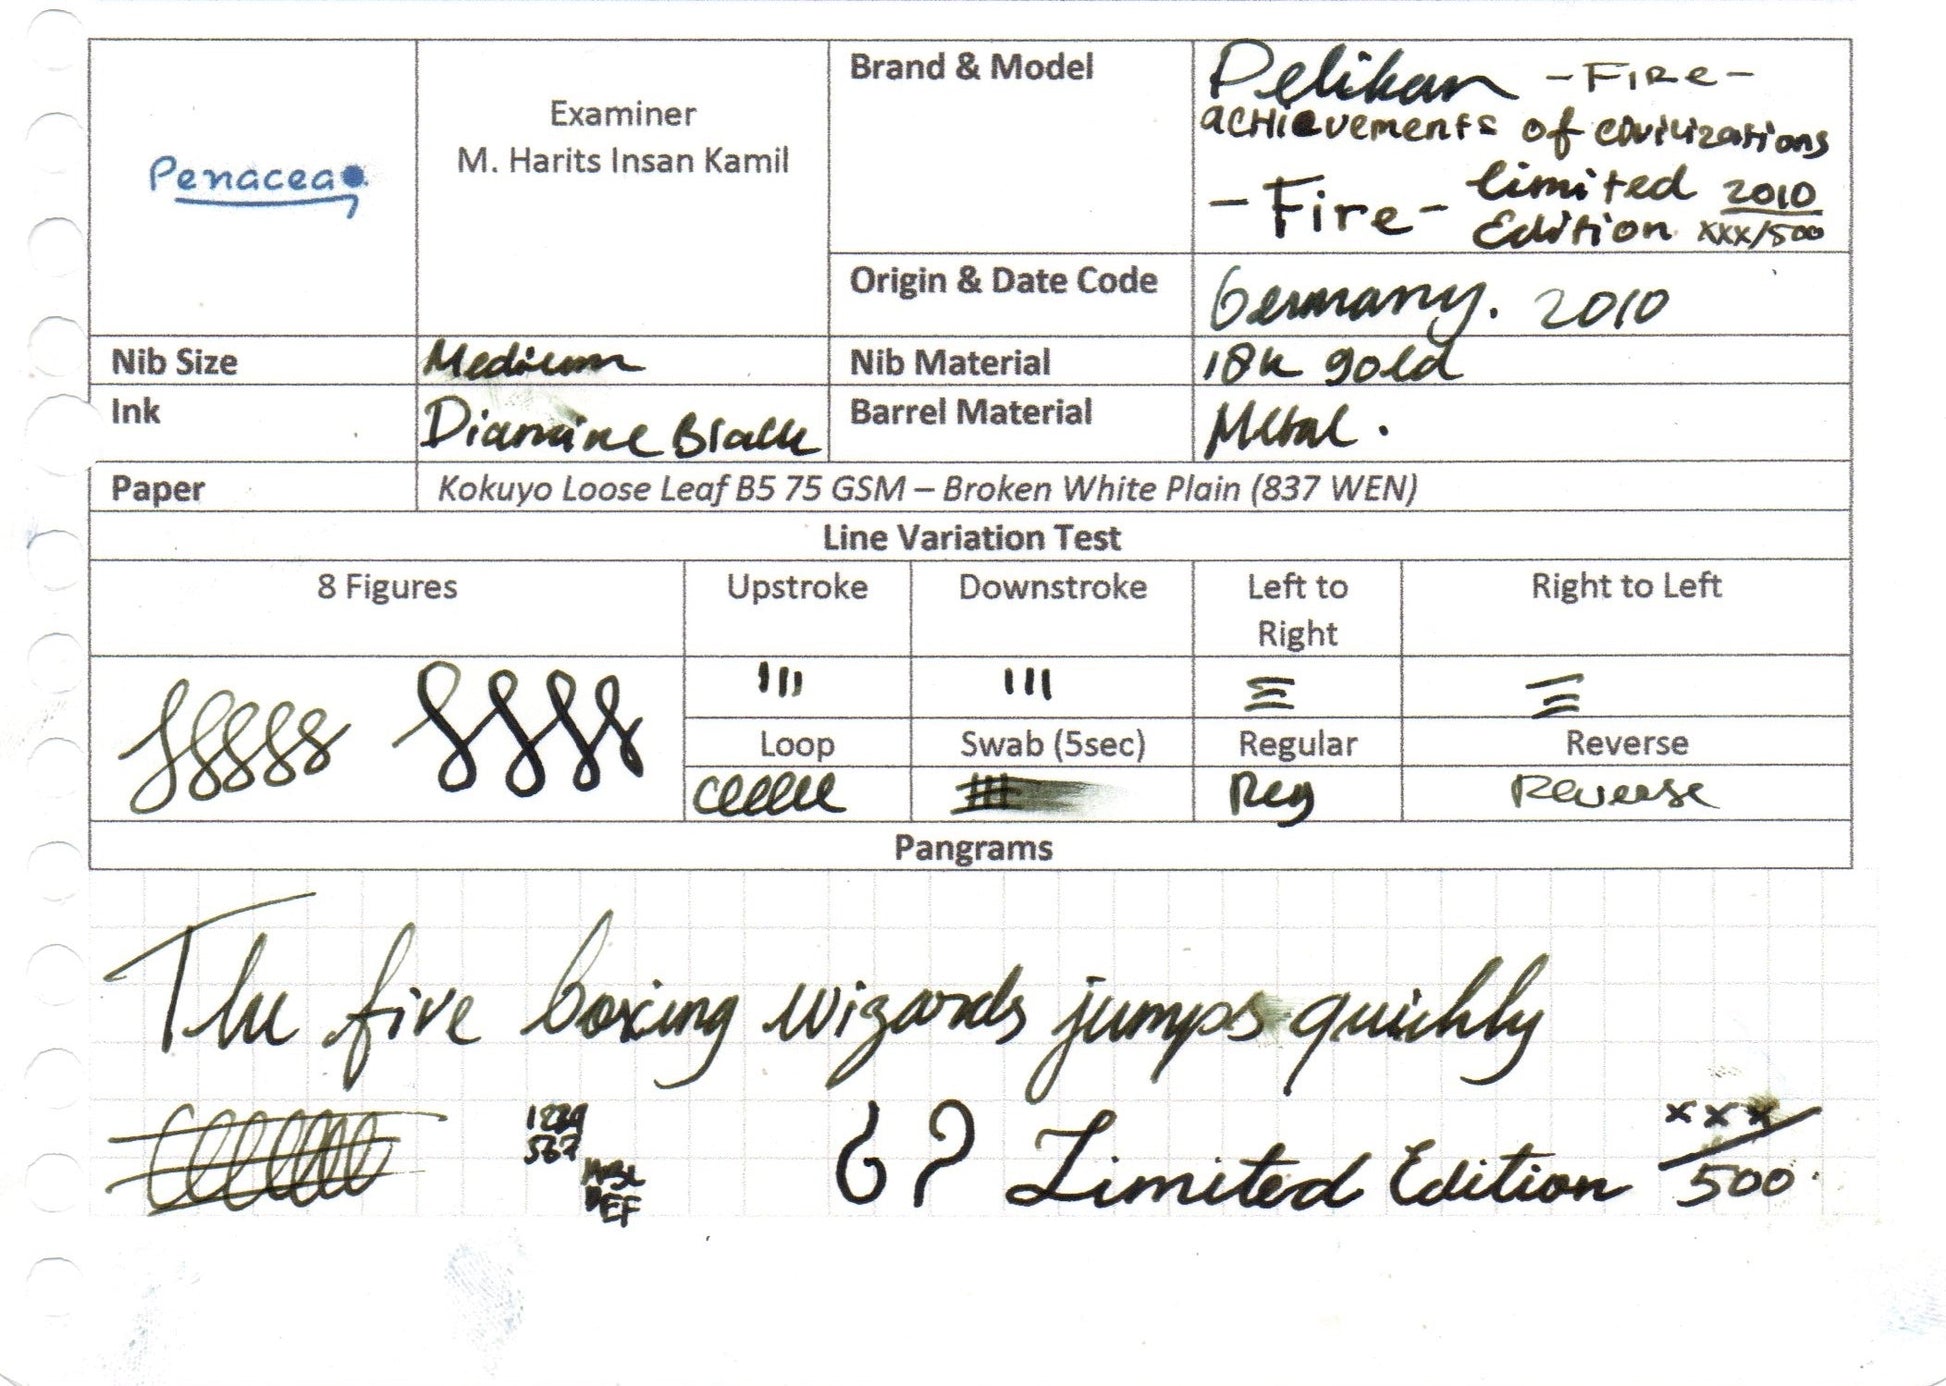 Penacea
Examiner
M. Harits Insan Kamil
Brand & Model
Pelikan - FIRe -
acHievements of civilizations
- Fire - limited 2010
Edition xxx/500
Origin & Date Code
Germany. 2010
Nib Size
Medium
Nib Material
18k gold
Ink
Diamine Black
Barrel Material
Metal.
Paper
Kokuyo Loose Leaf B5 75 GSM – Broken White Plain (837 WEN)
Line Variation Test
8 Figures
Upstroke
Downstroke
Left to
Right
Right to Left
Loop
Swab (5sec)
Regular
Reverse
Reg
Reverse
Pangrams
The five boxing wizards jumps quickly
1234
567
ABC
DEF
Limited Edition xxx/500